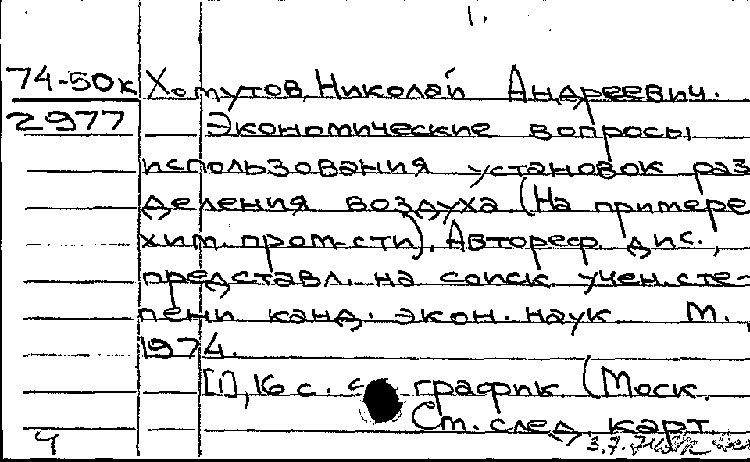 1.
74-50к Хомутов, Николай Андреевич.
2977 Экономические вопросы
использования установок раз
деления воздуха. (На примере
хим. пром-сти). Автореф. дис.,
представл. на соиск. учен. сте-
пени канд. экон. наук. М.,
1974.
[1], 16 с. с график. (Моск.
Ст. след. карт
4 3.7.